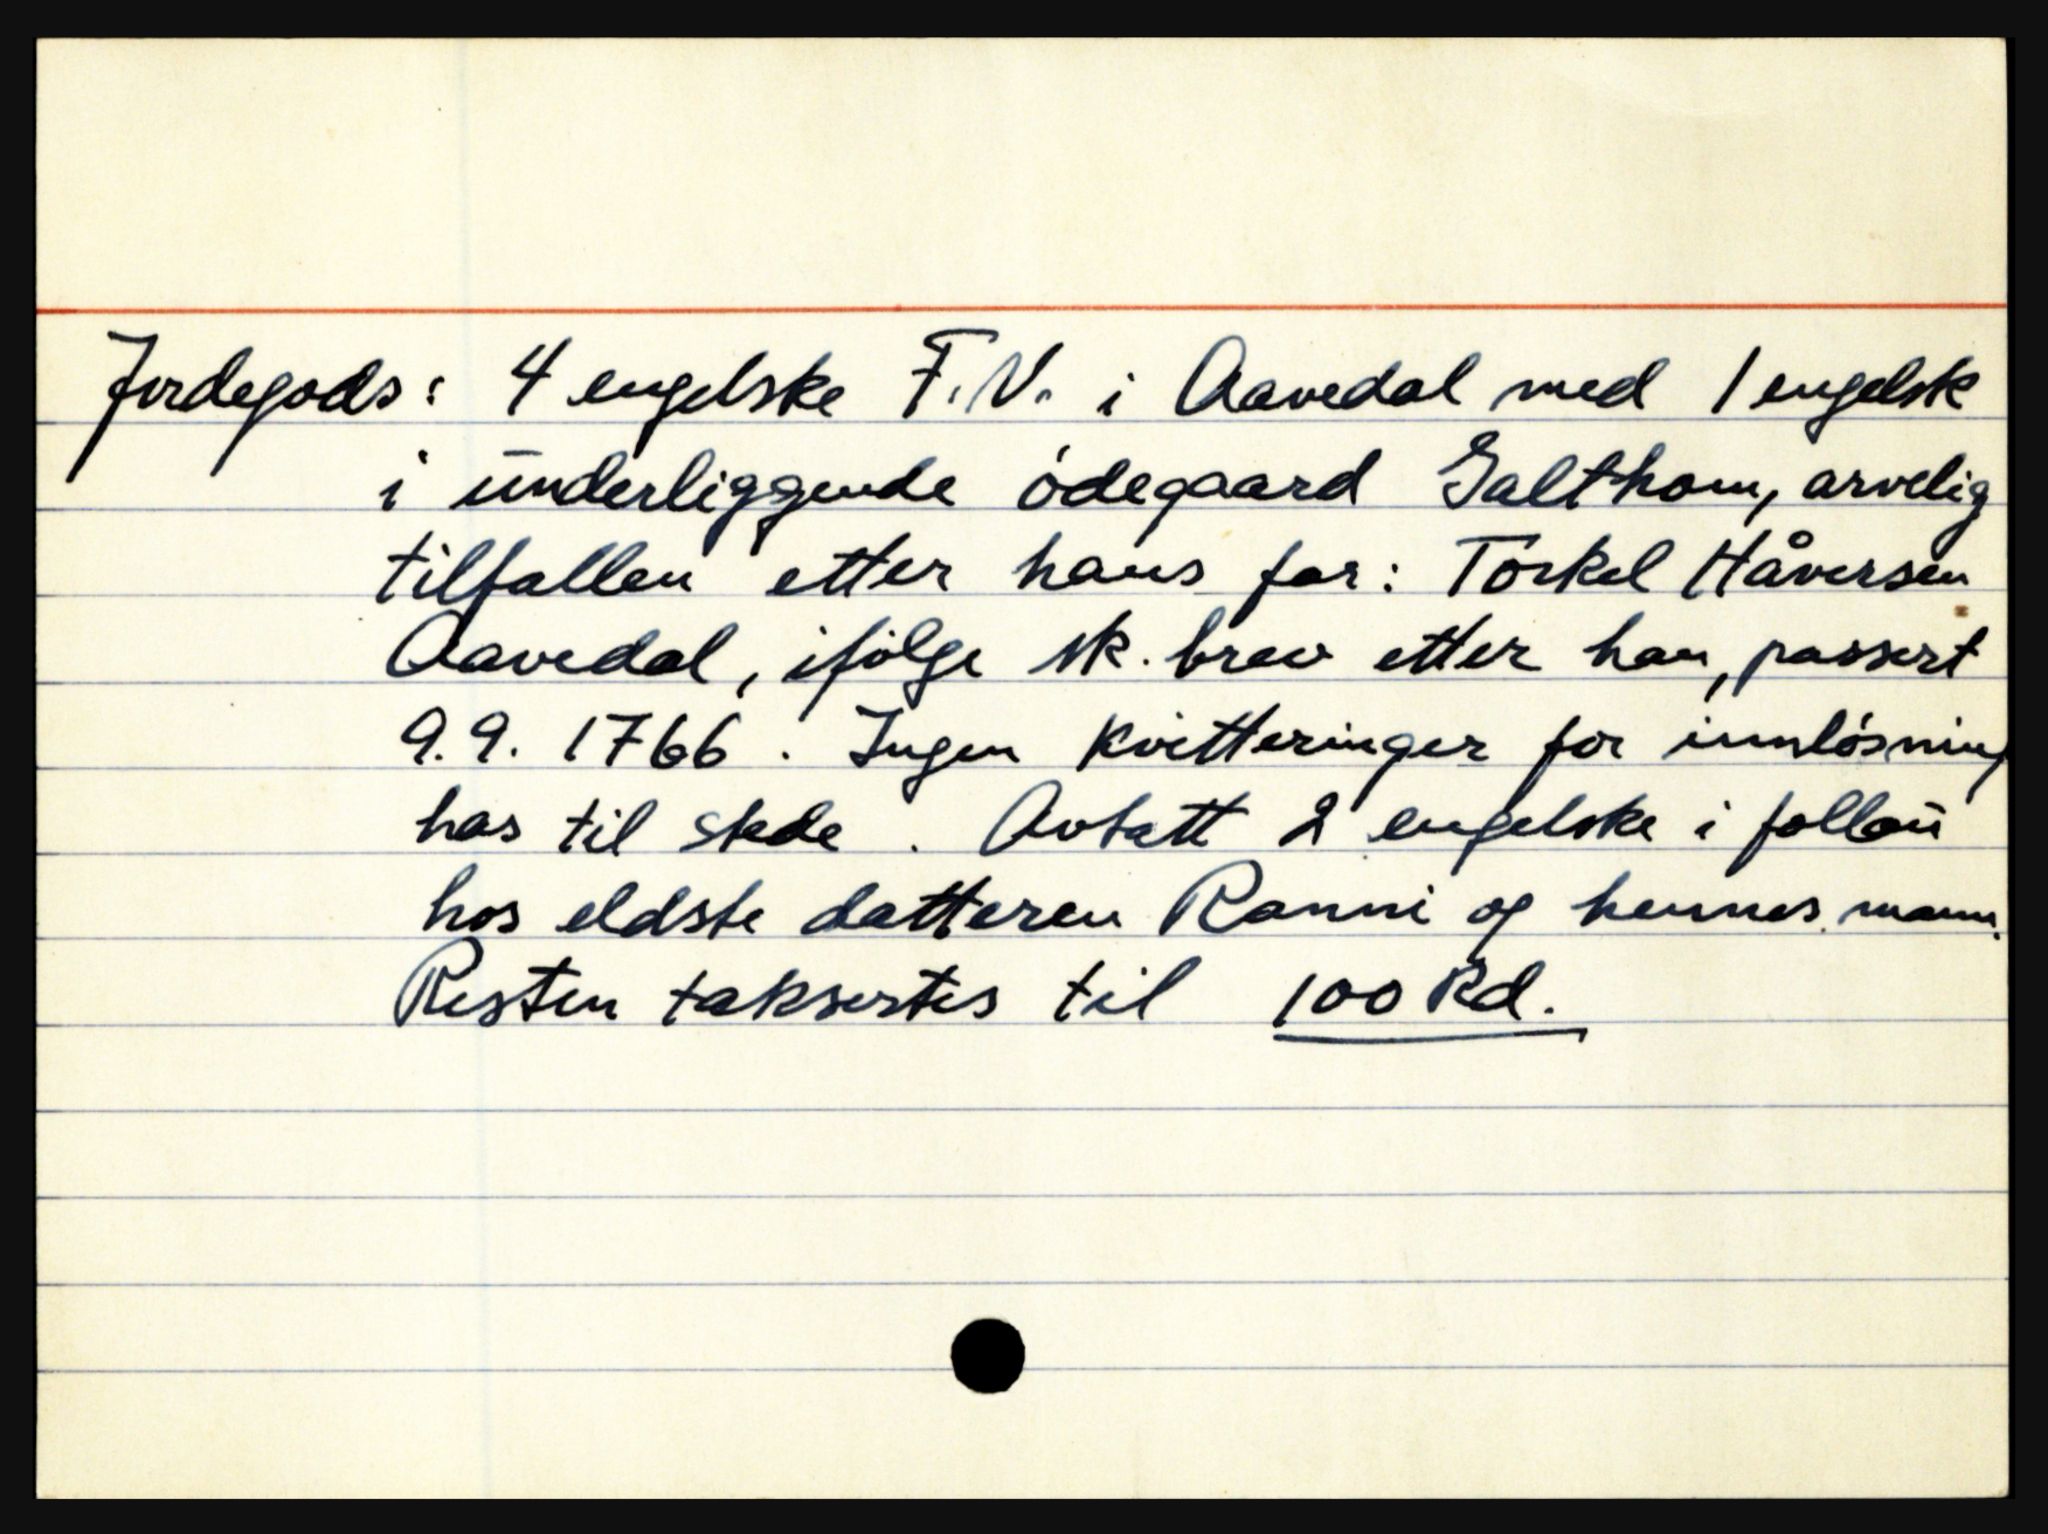 Jordegods: 4 engelske F.V. i Aavedal med 1 engelsk
i underliggende ödegaard Galthom, arvelig
tilfallen etter hans far: Torkel Håversen
Aavedal, ifölge sk. brev etter han, passert
9.9. 1766. Ingen kvitteringer for innlösning
has til stede. Avsatt 2 engelske i follaü
hos eldste datteren Ranni og hennes mann.
Resten taksertes til 100 Rd.